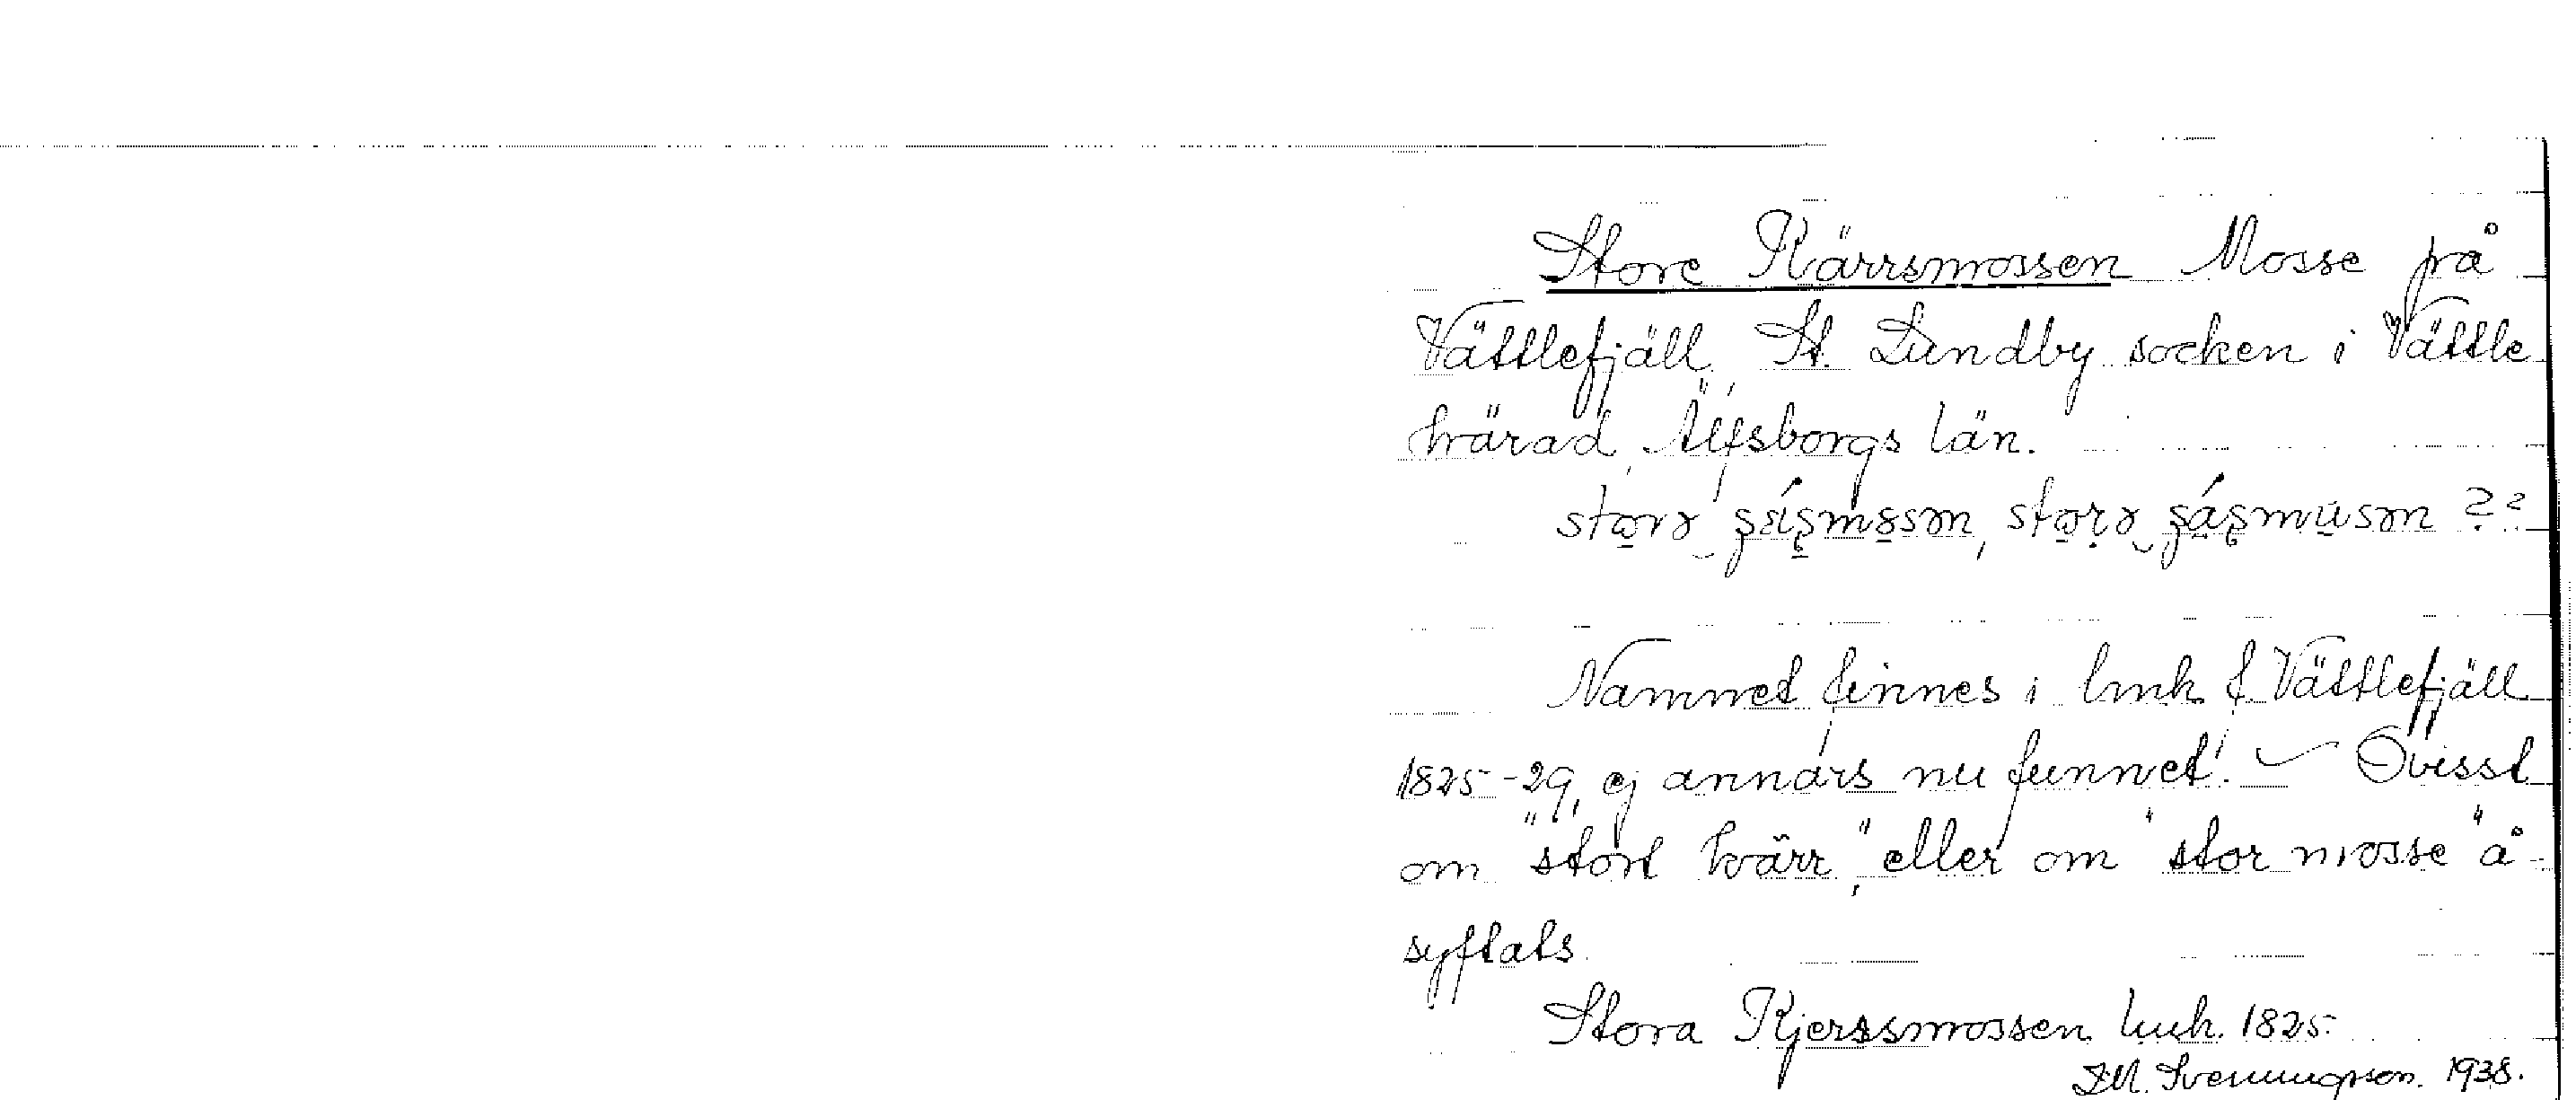 Store Kärrsmossen Mosse på
Vättlefjäll, St. Lundby socken i Vättle
härad, Älfsborgs län.
Namnet finnes i lmk f. Vättlefjäll
1825-29, ej annars nu funnet. – Ovisst
om "stort kärr", eller om "stor mosse" å-
syftats.
Stora Kjerssmossen lmk. 1825.
1938.